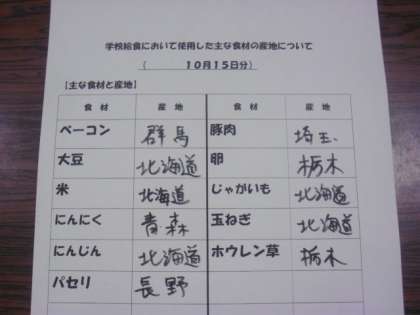 学校給食において使用した主な食材の産地について
( 10月15日分)
【主な食材と産地】
食材 産地 食材 産地
ベーコン 群馬 豚肉 埼玉
大豆 北海道 卵 栃木
米 北海道 じゃがいも 北海道
にんにく 青森 玉ねぎ 北海道
にんじん 北海道 ホウレン草 栃木
パセリ 長野